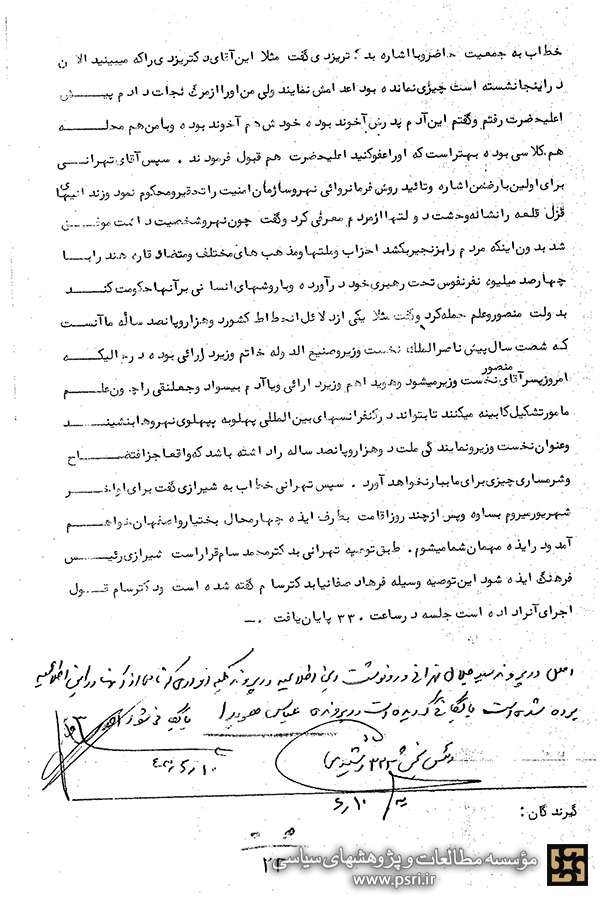 خطاب به جمعیت حاضر و با اشاره بدکتر یزدی گفت مثلا این آقای دکتر یزدی را که میبینید الان
در اینجا نشسته است چیزی نمانده بود اعدامش نمایند ولی من او را از مرگ نجات دادم پیـــش
اعلیحضرت رفتم و گفتم این آدم پدرش آخوند بوده خودش هم آخوند بوده و با من هم محلـــه
هم کلاسی بوده بهتر است که او را عفو کنید اعلیحضرت هم قبول فرمودند . سپس آقای تهرانـــی
برای اولین بار ضمن اشاره و تائید روش فرمانروائی نهرو سازمان امنیت را تحقیر و محکوم نمود و زندانیهای
قزل قلعه را نشانه وحشت دولتها از مردم معرفی کرد و گفت چون نهرو شخصیت داشت موفـــق
شد بدون اینکه مردم را بزنجیر بکشد احزاب و ملتها و مذهب های مختلف و متضاد قاره هند را بـــا
چهارصد میلیون نفر نفوس تحت رهبری خود در آورده و با روشهای انسانی بر آنها حکومت کنـــد
بدولت منصور و علم حمله کرد و گفت مثلا یکی از دلائل انحطاط کشور دو هزار و پانصد ساله ما آنست
کـه شصت سال پیش ناصرالملک نخست وزیر و صنیع الدوله خاتم وزیر دارائی بوده در حالیکـــه
امروز پسر آقای منصور نخست وزیر میشود و هویدا هم وزیر دارائی و یا آدم بیسواد و جعلنقی را چون علـــم
مامور تشکیل کابینه میکنند تا بتواند در کنفرانسهای بین المللی پهلو به پپهلوی نهروها بنشینـــد
و عنوان نخست وزیر و نمایندگی ملت دو هزار و پانصد ساله را داشته باشد که واقعا جز افتضـــاح
و شرمساری چیزی برای ما ببار نخواهد آورد . سپس تهرانی خطاب به شیرازی گفت برای اواخـــر
شهریور میروم بساوه و پس از چند روز اقامت بطرف ایذه چهارمحال بختیار و اصفهان خواهـــم
آمد و در ایذه مهمان شما میشوم . طبق توصیه تهرانی بدکتر محمد سام قرار است شیرازی رئیـــس
فرهنگ ایذه شود این توصیه وسیله فرهاد صفانیا بدکتر سام گفته شده است و دکتر سام قـــول
اجرای آنرا داده است جلسه در ساعت ۳۳۰ پایان یافت .ـ
اصل در پرونده سید جلال تهرانی و رونوشت این اطلاعیه در پرونده کلیه افرادی که نامی از آنها در این اطلاعیه
برده شده است بایگانی گردیده است در پرونده عباس هویدا بایگانی شود
رئیس بخش ۳۳۳
۱۰ر۶
۱۰ر۶
گیرندگان :
۲۴
مؤسسه مطالعات و پژوهشهای سیاسی
www.psri.ir